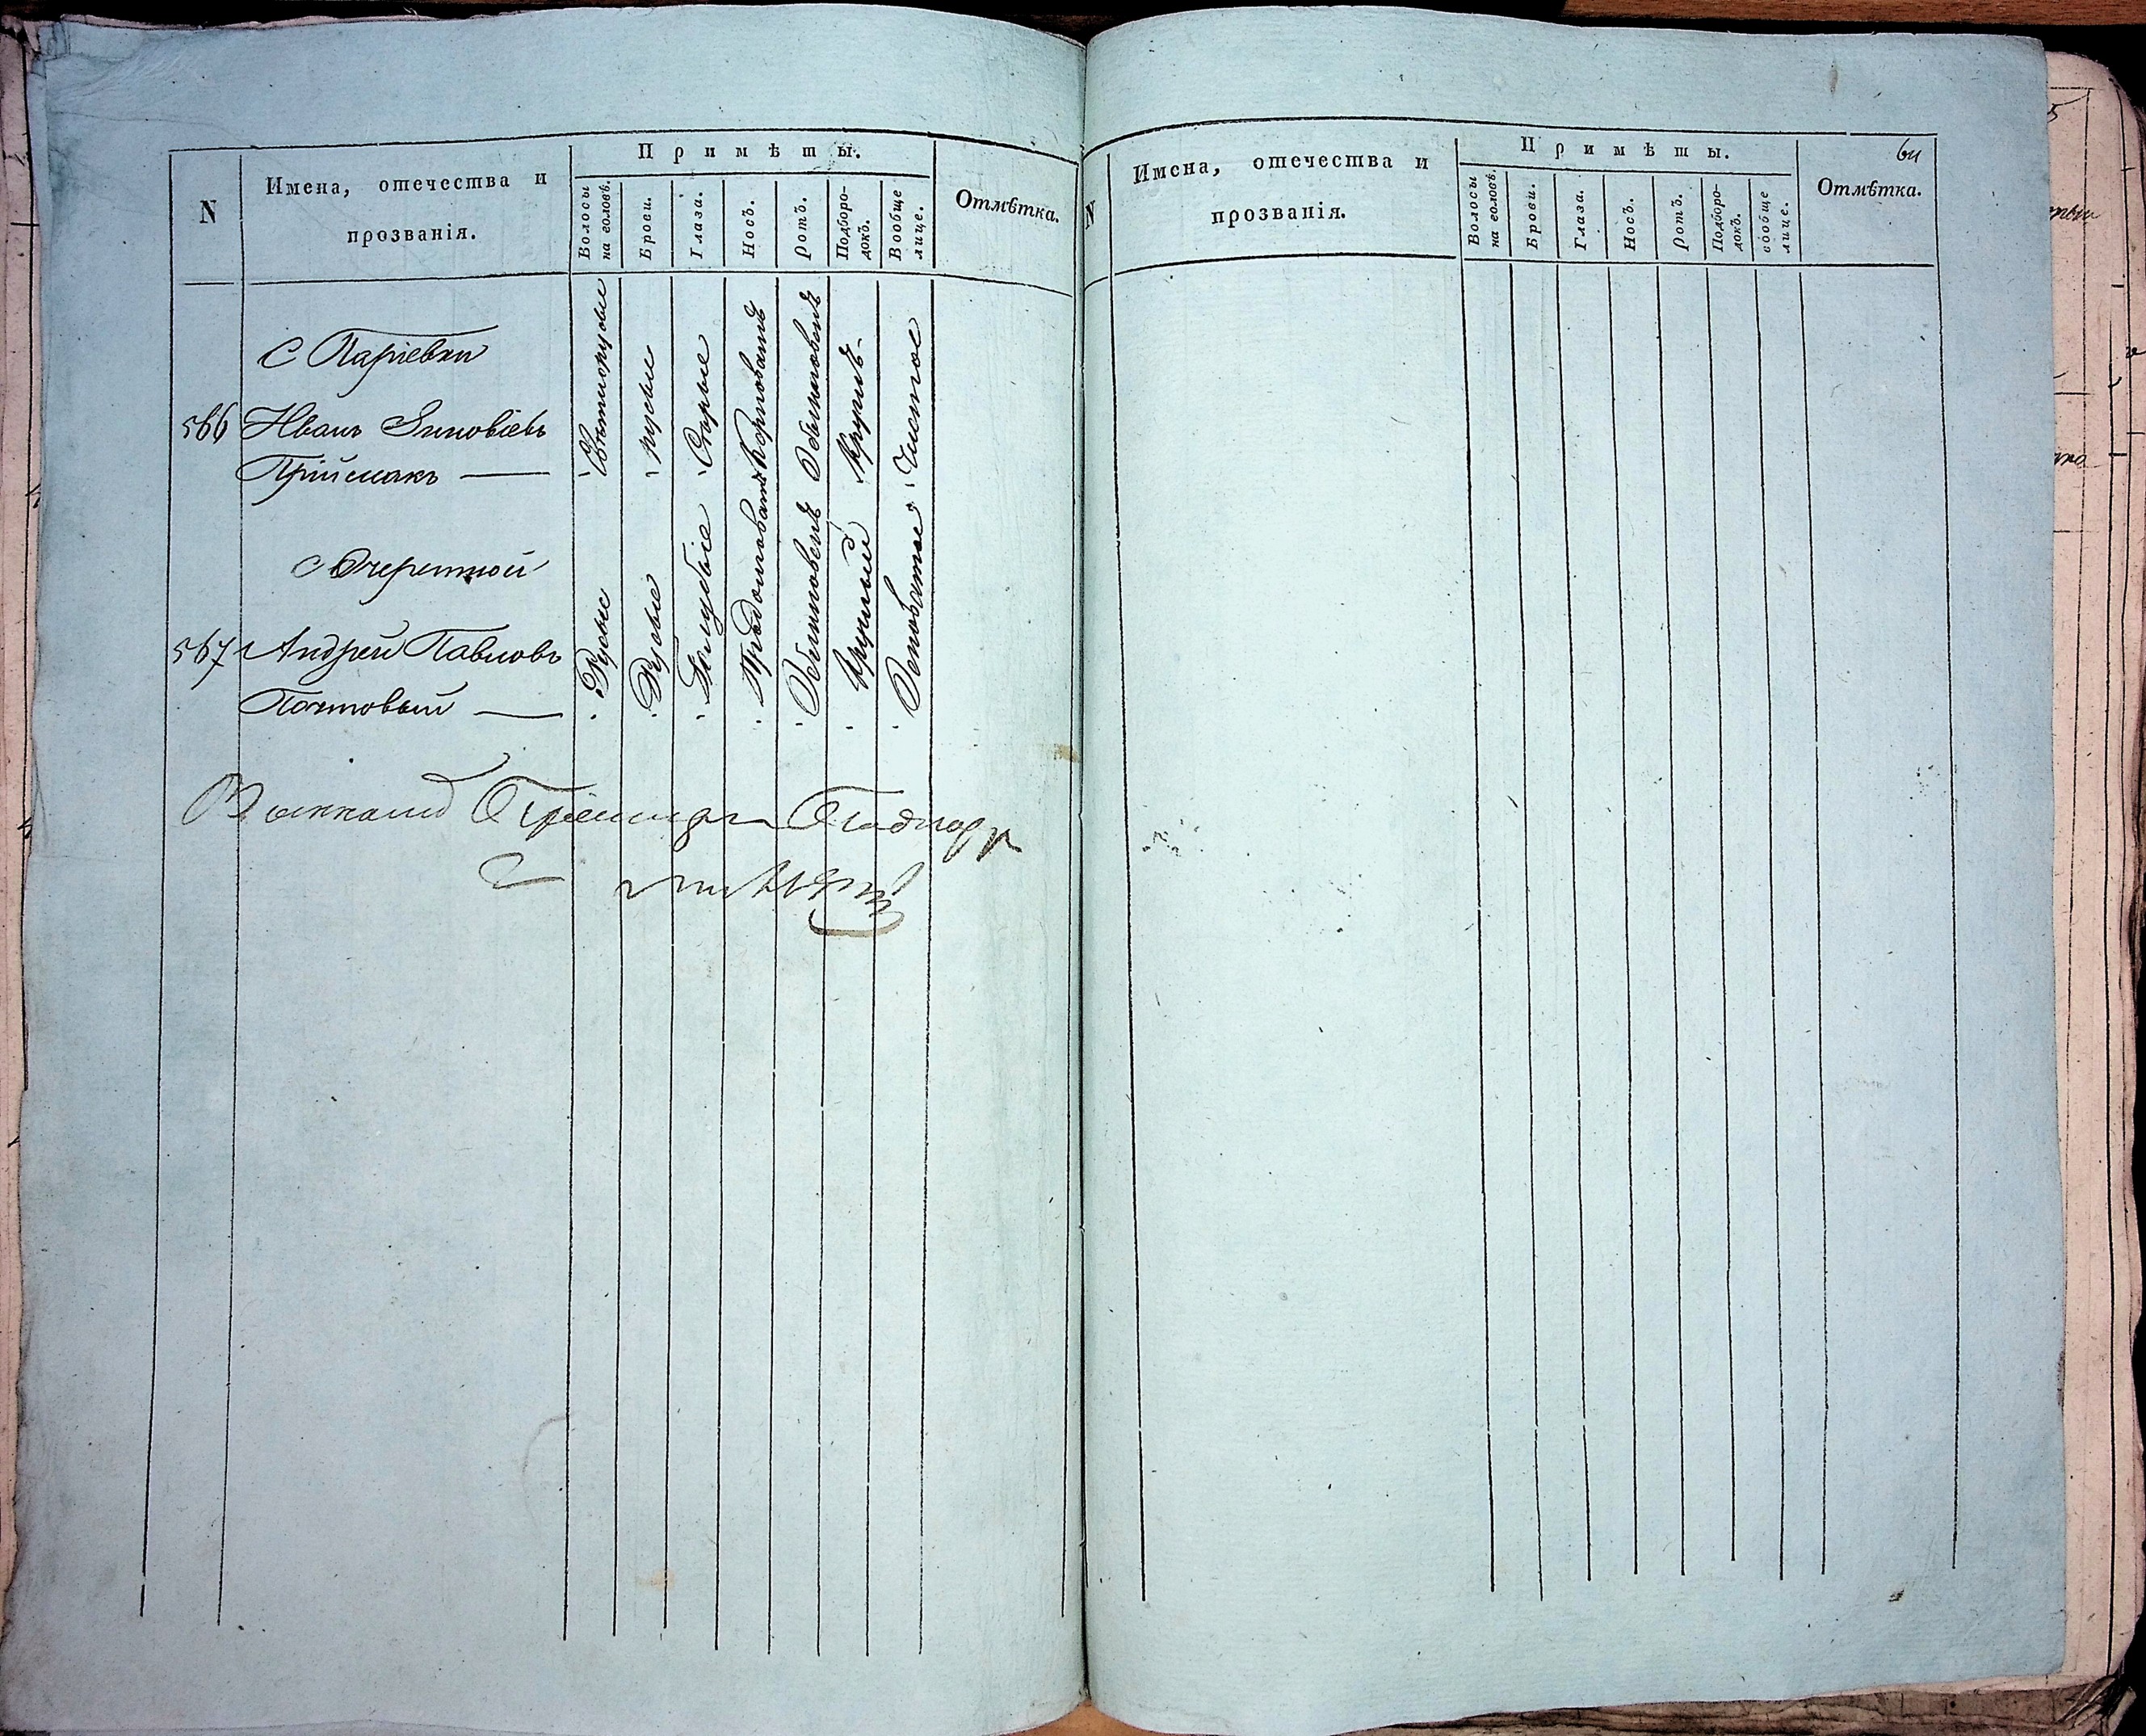 N
Имена, отечества и
прозванія.
Примѣты.
Волосы
на головѣ.
Брови.
Глаза.
Носъ.
Ротъ.
Подборо-
докъ.
Вообще
лице.
Отмѣтка.
С Паріевки
566 Иванъ Зиновіевъ
Приймакъ
Свѣтлорусые
русые
Сѣрые
Обыкновенъ
Круглъ
Чистое
с Очеретной
567 Андрей Павловъ
Почтовый
Русые
Русые
Голубые
Продолговатъ
Обыкновенъ
Круглый
Осповатое
N
Имена, отечества и
прозванія.
Примѣты.
Волосы
на головѣ.
Брови.
Глаза.
Носъ.
Ротъ.
Подборо-
докъ.
сообще
лице.
Отмѣтка.